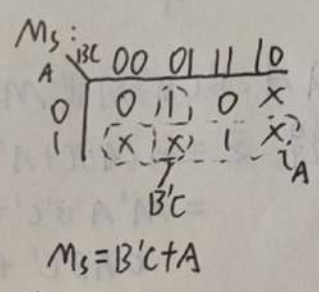 Ms:
A BC 00 01 11 10
0 0 1 0 X
1 X X 1 X
A
B'C
Ms=B'C+A